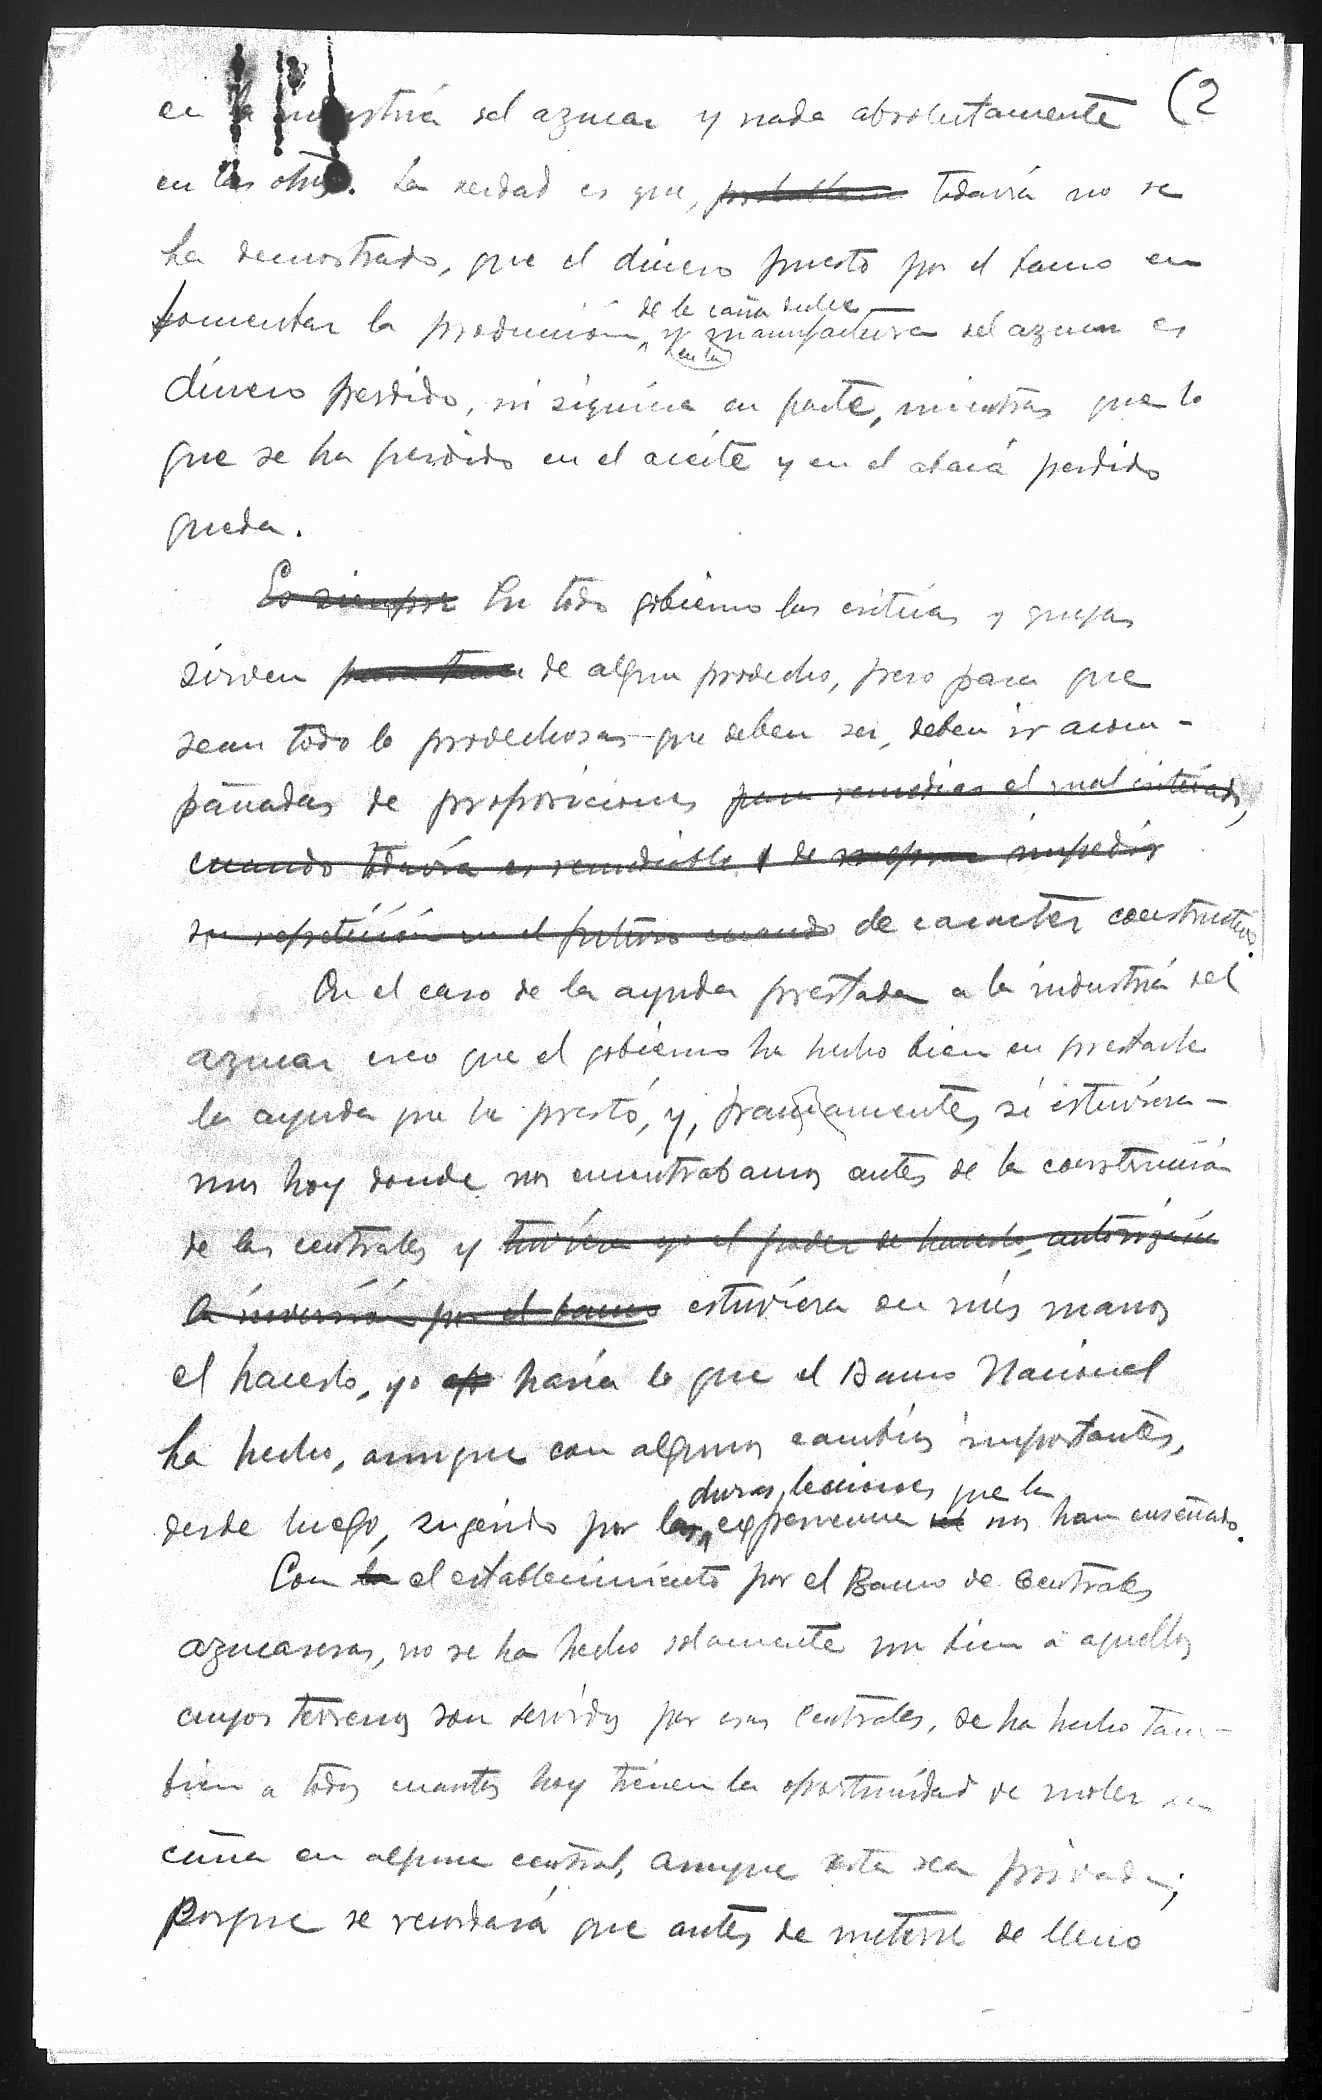 en la industria del azucar y nada absolutamente (2
en las otras. La verdad es que, todavía no se
ha demostrado, que el dinero puesto por el banco en
fomentar la produccion, de la caña dulce y en la manufactura del azucar es
dinero perdido, ni siquiera en parte, mientras que lo
que se ha perdido en el aceite y en el abacá perdido
queda.
Es siempre En todo gobierno las criticas y quejas
sirven para tener de algun provecho, pero para que
sean todo lo provechosas que deben ser, deben ir acom-
pañadas de proposiciones para remediar el mal criticado,
cuando todavía es remediable y de impedir
su repetición en el futuro cuando de caracter constructivo.
En el caso de la ayuda prestada a la industria del
azucar creo que el gobierno ha hecho bien en prestarle
la ayuda que le prestó, y, francamente, si estuviera-
mos hoy donde nos encontrabamos antes de la construccion
de las centrales y tuviera yo el poder de hacerlo, autorizaria
la inversión por el banco estuviera en mis manos
el hacerlo, yo haria lo que el Banco Nacional
ha hecho, aunque con algunos cambios importantes,
desde luego, sugerido por las duras lecciones que la experiencia nos han enseñado.
Con la el establecimiento por el Banco de Centrales
azucareras, no se ha hecho solamente un bien a aquellos
cuyos terrenos son servidos por esas centrales, se ha hecho tam-
bien a todos cuantos hoy tienen la oportunidad de moler su
caña en alguna central, aunque esta sea privada;
porque se recordará que antes de meterse de lleno